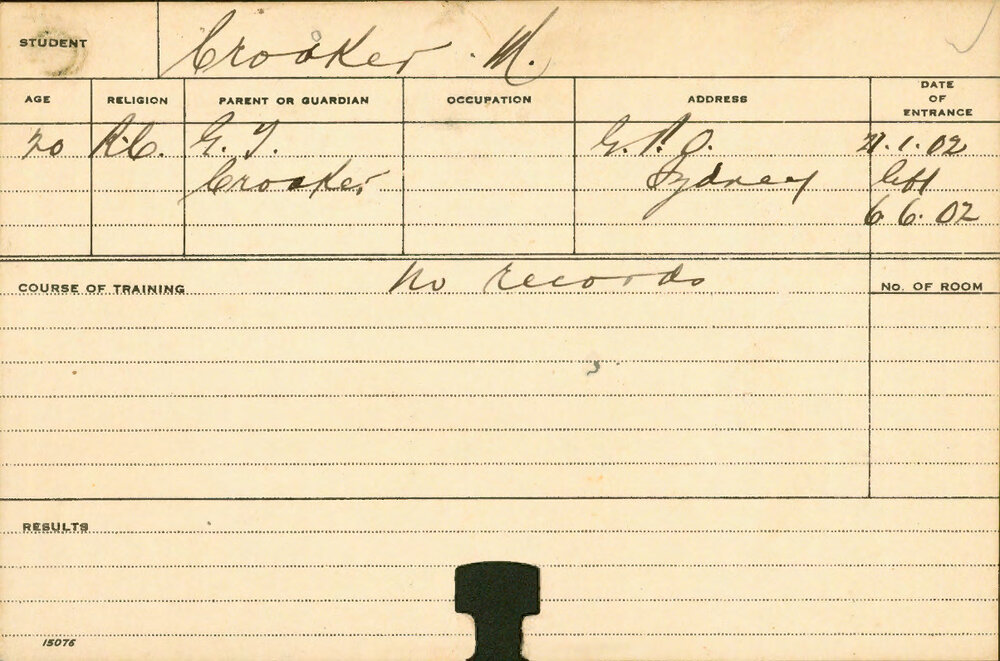 STUDENT Crooker M.
AGE RELIGION PARENT OR GUARDIAN OCCUPATION ADDRESS DATE OF ENTRANCE
20 R.C. G. G.P.O. 21.1.02
Crooker Sydney left
6.6.02
COURSE OF TRAINING No records No. OF ROOM
RESULTS
15075